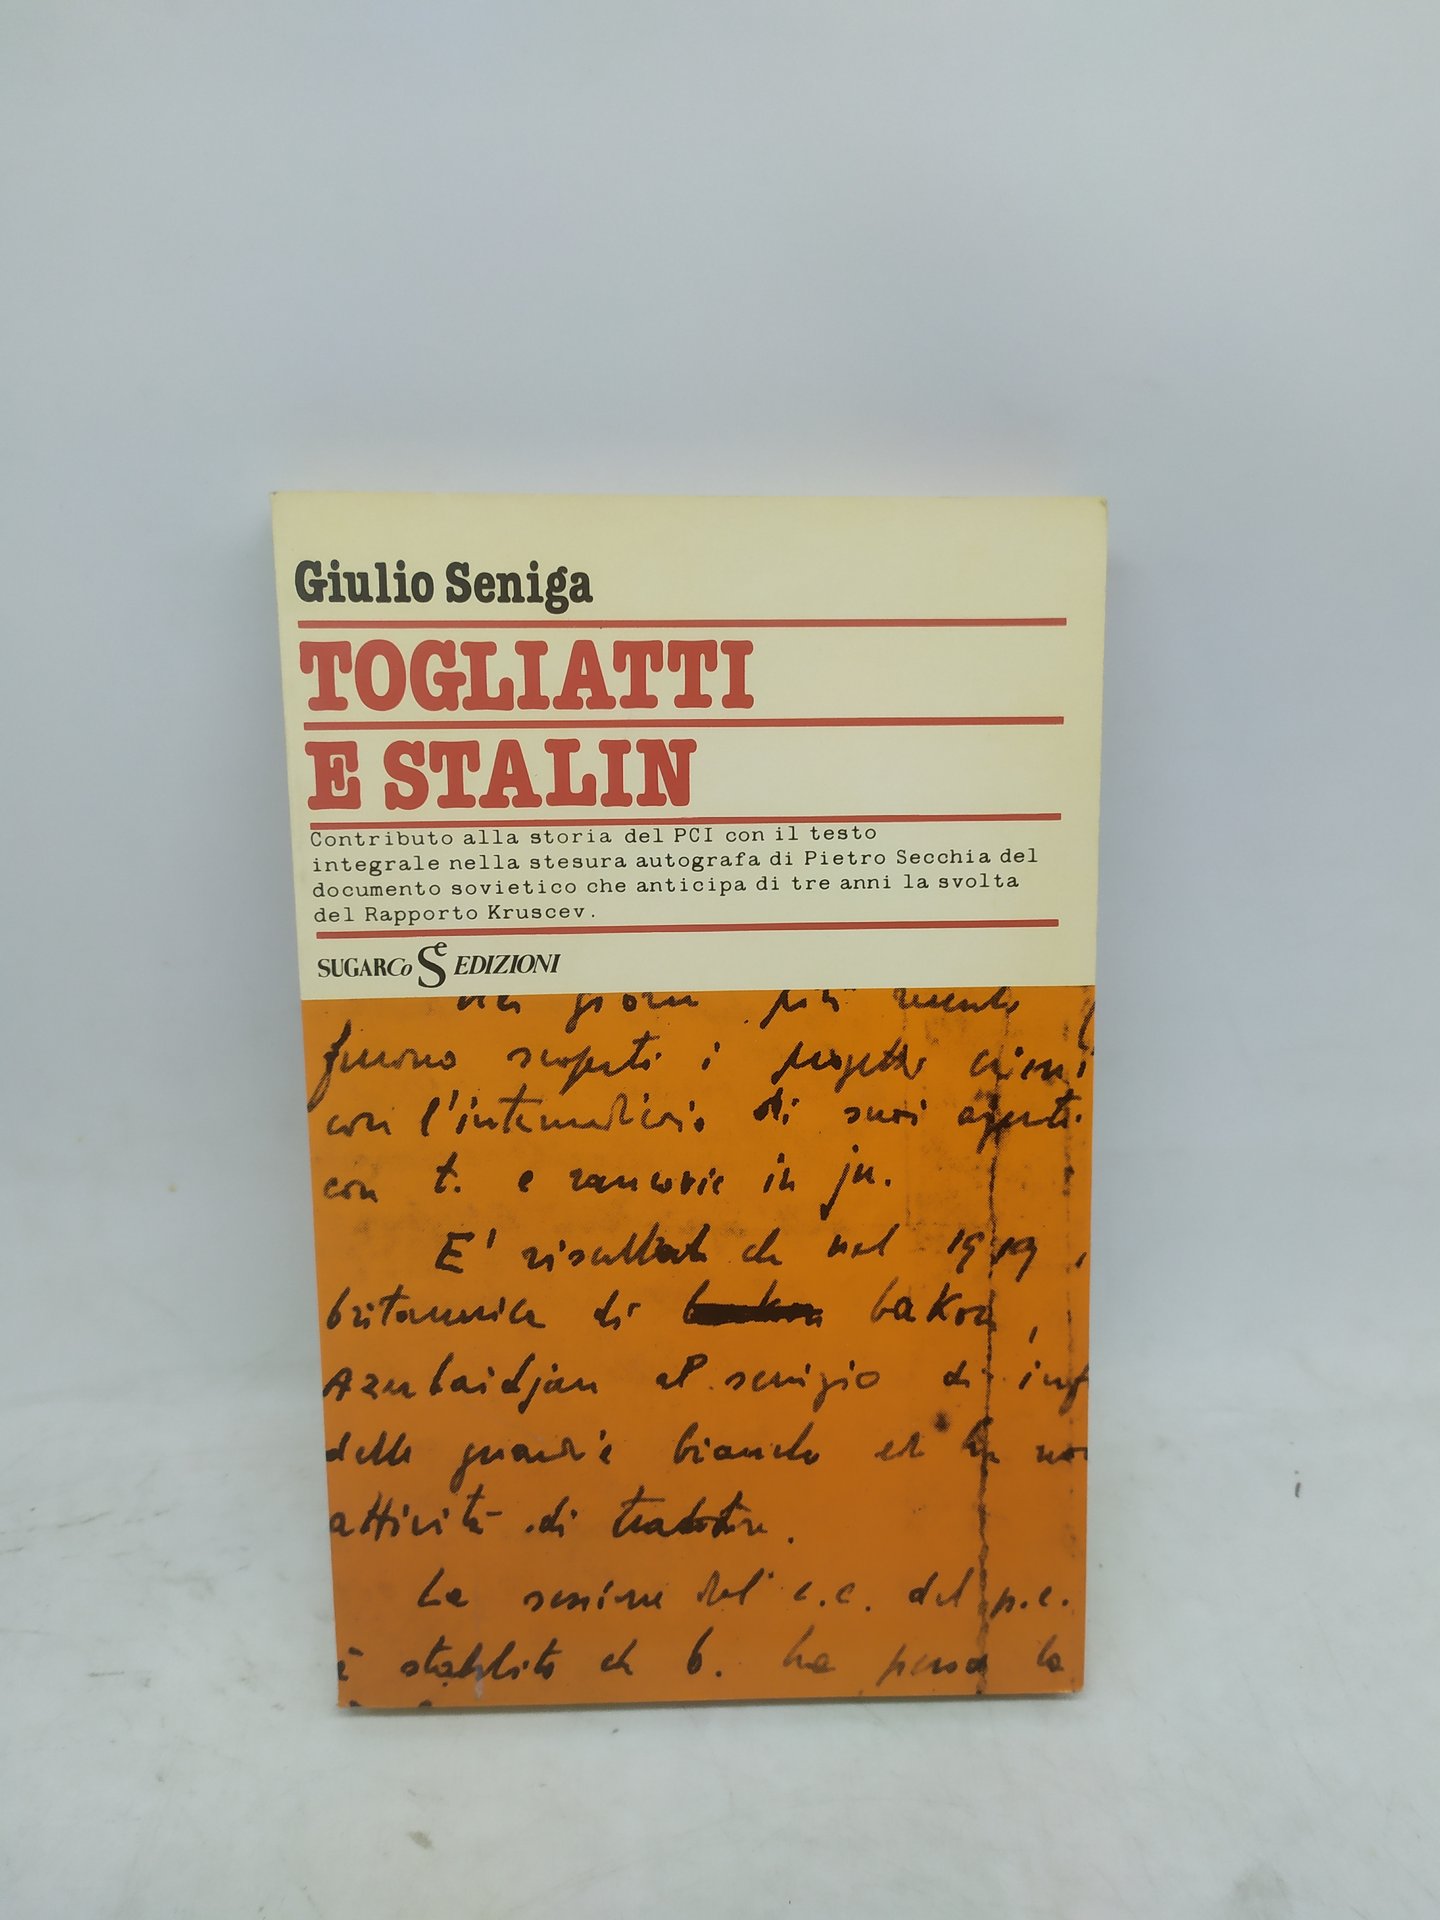 Giulio Seniga
TOGLIATTI
E STALIN
Contributo alla storia del PCI con il testo
integrale nella stesura autografa di Pietro Secchia del
documento sovietico che anticipa di tre anni la svolta
del Rapporto Kruscev.
SUGARCo Se EDIZIONI
giorni più
furono scoperti i progetti crimi
con l'intermediario di suoi agenti
con t. e rancovic in ju.
E' risultato che nel 1919,
britannica di bakou,
Azerbaidjan al servizio di inf
delle guardie bianche ed ha
attività di traditore.
La sessione del c.c. del p.c.
è stabilito che b. ha perso la